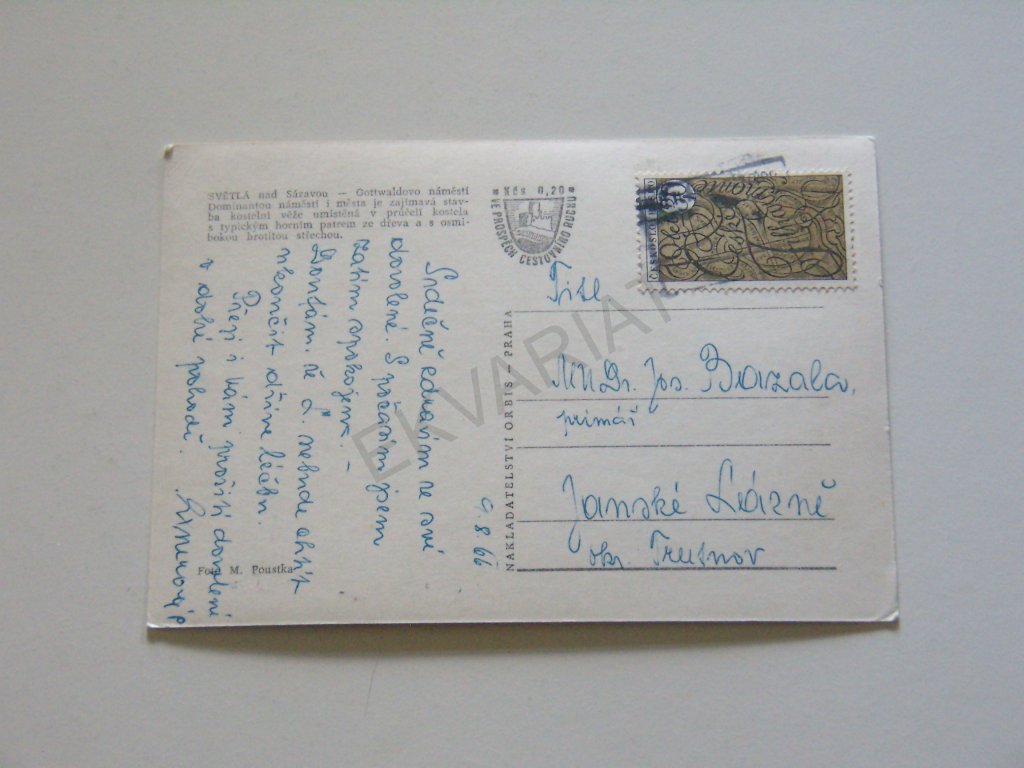 SVĚTLÁ nad Sázavou — Gottwaldovo náměstí
Dominantou náměstí i města je zajímavá stav-
ba kostelní věže umístěná v průčelí kostela
s typickým horním patrem ze dřeva a s osmi-
bokou hrotitou střechou.
Kčs 0,20
VE PROSPĚCH CESTOVNÍHO RUCHU
ČESKOSLO
9. 8. 66
Srdečně zdravím ze své
dovolené. S počasím jsem
zatím spokojena. –
Doufám, že č. nebude chtít
ukončit dříve léčbu.
Přeji i Vám prožití dovolené
v dobré pohodě.
Foto M. Poustka
NAKLADATELSTVÍ ORBIS — PRAHA
Titl.
MUDr. Jos. Bazala,
primář
Janské Lázně
okr. Trutnov
EKVARIAT